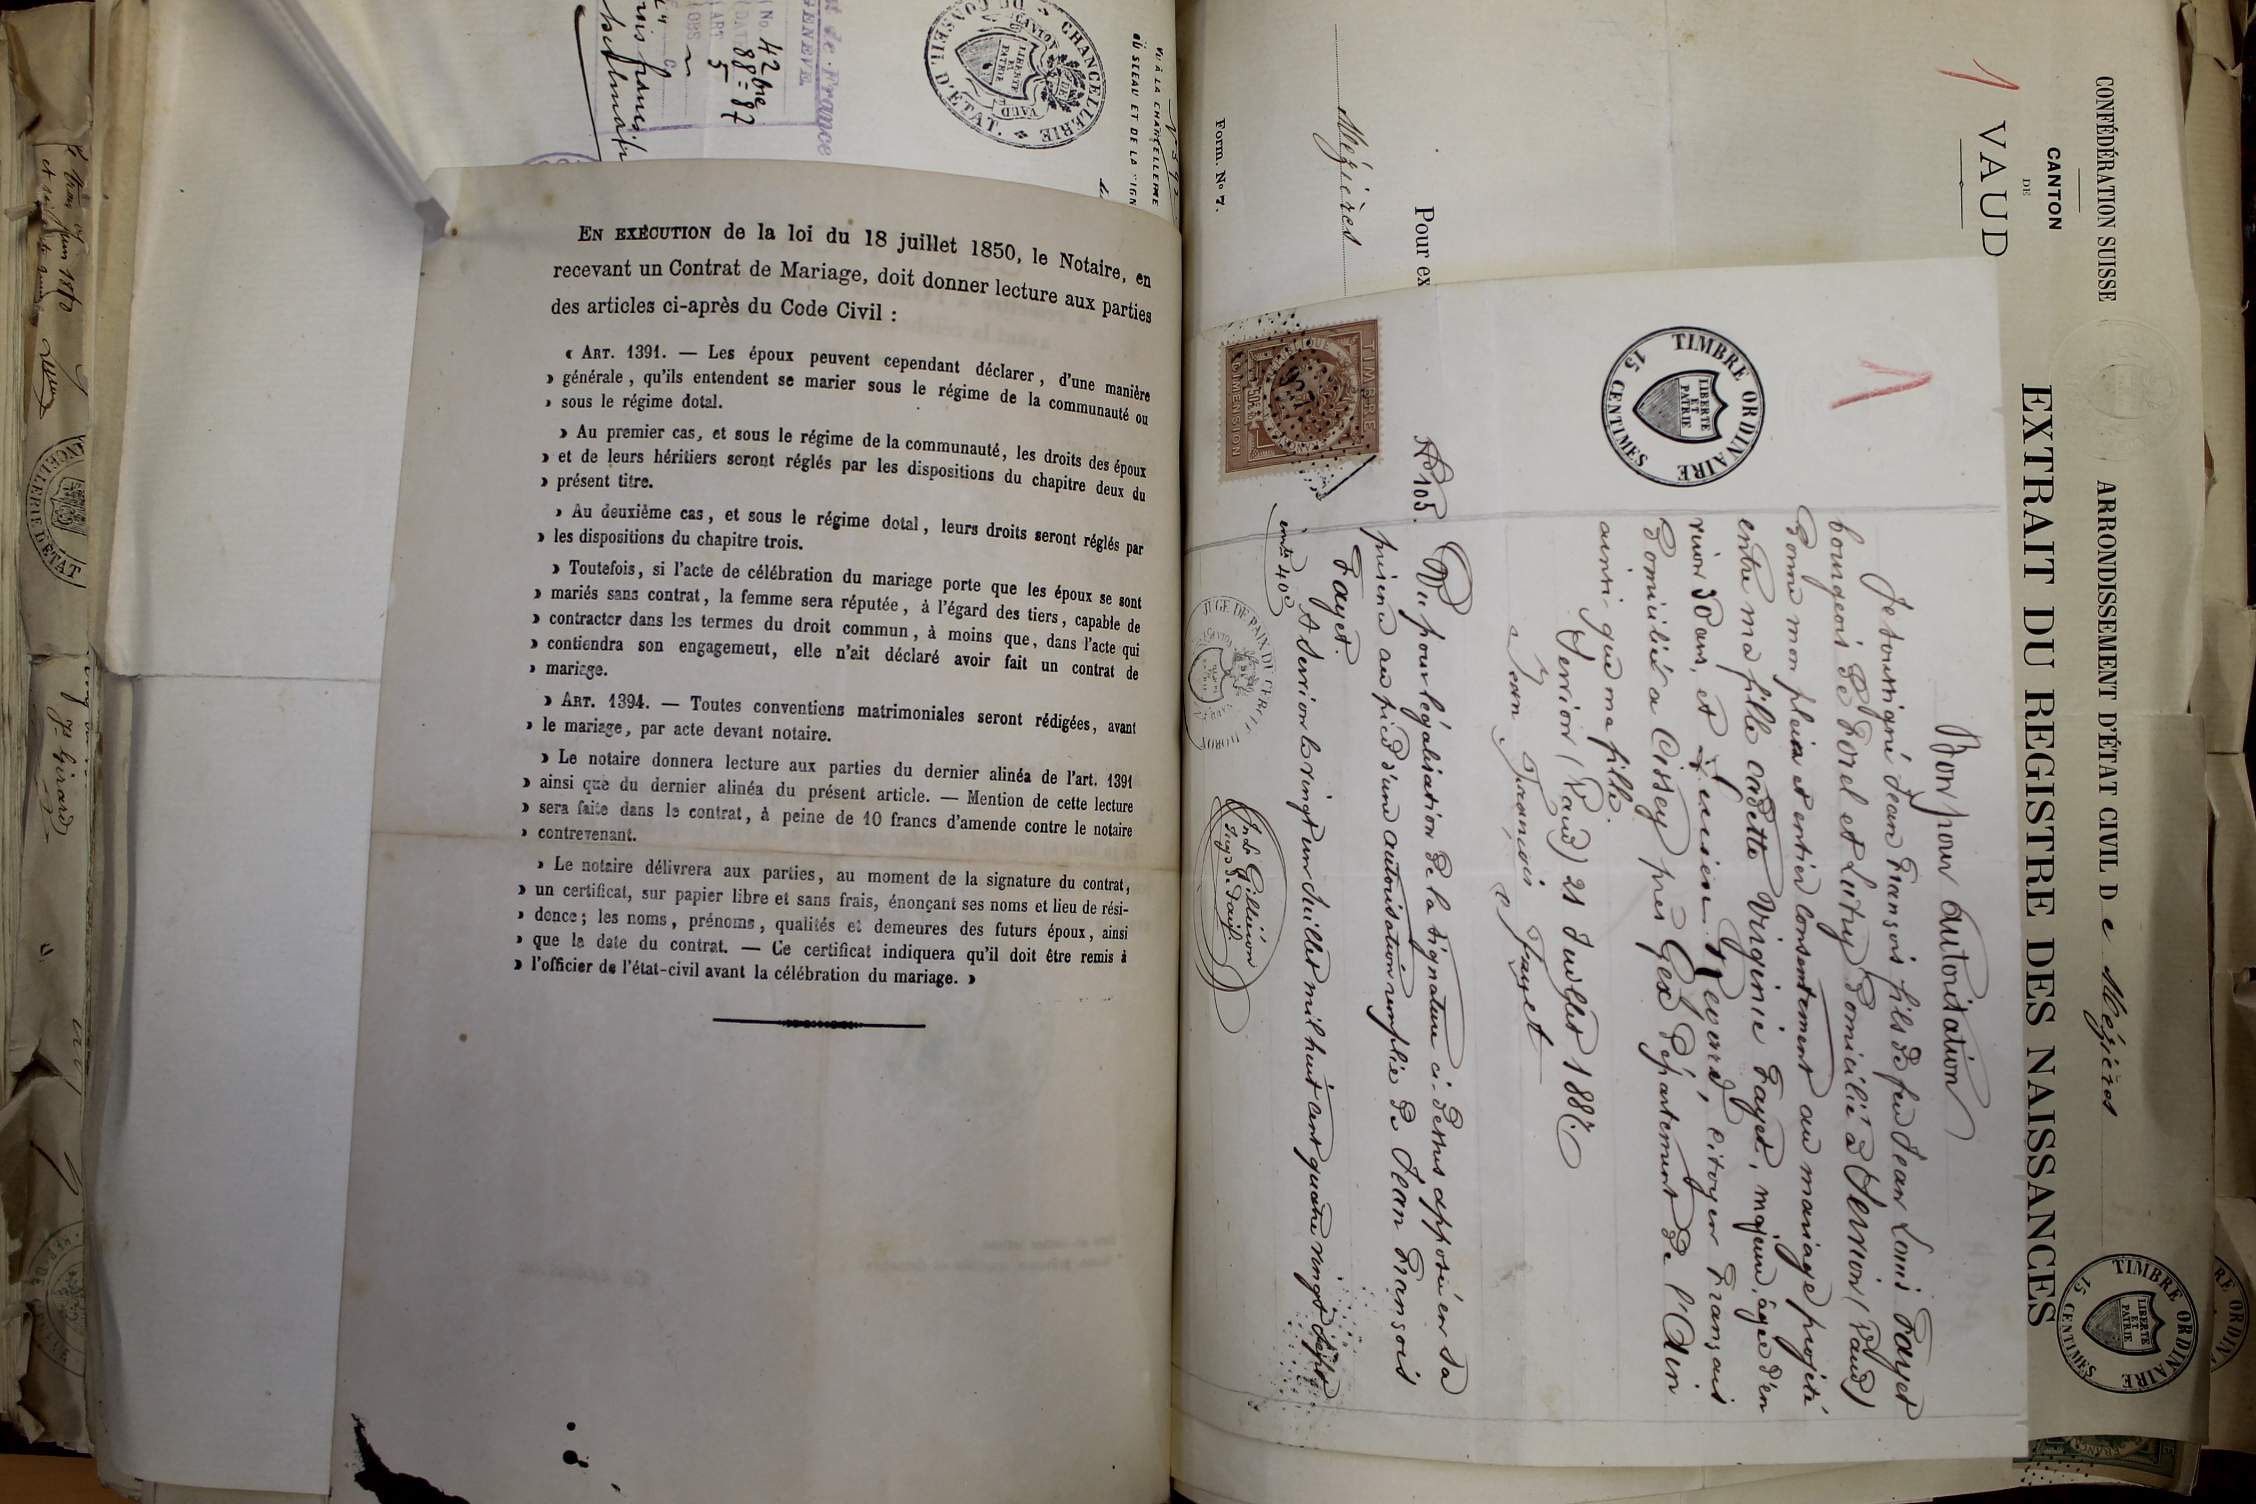 EN EXÉCUTION de la loi du 18 juillet 1850, le Notaire, en
recevant un Contrat de Mariage, doit donner lecture aux parties
des articles ci-après du Code Civil :
« ART. 1391. — Les époux peuvent cependant déclarer, d'une manière
» générale, qu'ils entendent se marier sous le régime de la communauté ou
» sous le régime dotal.
» Au premier cas, et sous le régime de la communauté, les droits des époux
» et de leurs héritiers seront réglés par les dispositions du chapitre deux du
» présent titre.
» Au deuxième cas, et sous le régime dotal, leurs droits seront réglés par
» les dispositions du chapitre trois.
» Toutefois, si l'acte de célébration du mariage porte que les époux se sont
» mariés sans contrat, la femme sera réputée, à l'égard des tiers, capable de
» contracter dans les termes du droit commun, à moins que, dans l'acte qui
» contiendra son engagement, elle n'ait déclaré avoir fait un contrat de
» mariage.
» ART. 1394. — Toutes conventions matrimoniales seront rédigées, avant
» le mariage, par acte devant notaire.
» Le notaire donnera lecture aux parties du dernier alinéa de l'art. 1391
» ainsi que du dernier alinéa du présent article. — Mention de cette lecture
» sera faite dans le contrat, à peine de 10 francs d'amende contre le notaire
» contrevenant.
» Le notaire délivrera aux parties, au moment de la signature du contrat,
» un certificat, sur papier libre et sans frais, énonçant ses noms et lieu de rési-
» dence; les noms, prénoms, qualités et demeures des futurs époux, ainsi
» que la date du contrat. — Ce certificat indiquera qu'il doit être remis à
» l'officier de l'état-civil avant la célébration du mariage. »
CHANCELLERIE D'ÉTAT.
CANTON DE VAUD
LIBERTÉ ET PATRIE
de France
GENÈVE
No 42 bre
88 = 87
ART 5
VU À LA CHANCELLERIE
DU SCEAU ET DE LA SIGN
CONFÉDÉRATION SUISSE
CANTON
DE
VAUD
ARRONDISSEMENT D'ÉTAT CIVIL De Mézières
EXTRAIT DU REGISTRE DES NAISSANCES
TIMBRE ORDINAIRE
LIBERTÉ ET PATRIE
15 CENTIMES
1
TIMBRE ORDINAIRE
LIBERTÉ ET PATRIE
15 CENTIMES
1
Bon pour autorisation
Je soussigné Jean François fils de feu Jean Louis Payet
bourgeois de Forel et Lutry domicilié à Servion (Vaud)
Donne mon plein et entier consentement au mariage projeté
entre ma fille cadette Virginie Payet, majeure, agée d'en
viron 30 ans, et Lucien Regard, citoyen Français
Domicilié à Cissey près Gex Département de l'Ain
ainsi que ma fille.
Servion (Vaud) 21 Juillet 1887.
Jean François Payet
No 105. Vu pour légalisation de la signature ci-dessus apposée en sa
présence au pied d'une autorisation remplie de Jean François
Payet.
A Servion le vingt un Juillet mil huit cent quatre vingt sept
emt 40c
JUGE DE PAIX DU CERCLE D'ORON
Gilliéron
Juge de Paix.
TIMBRE
DIMENSION
Pour ex
Mézières
Form. No 7.
juin 1870
CHANCELLERIE D'ÉTAT
Girard